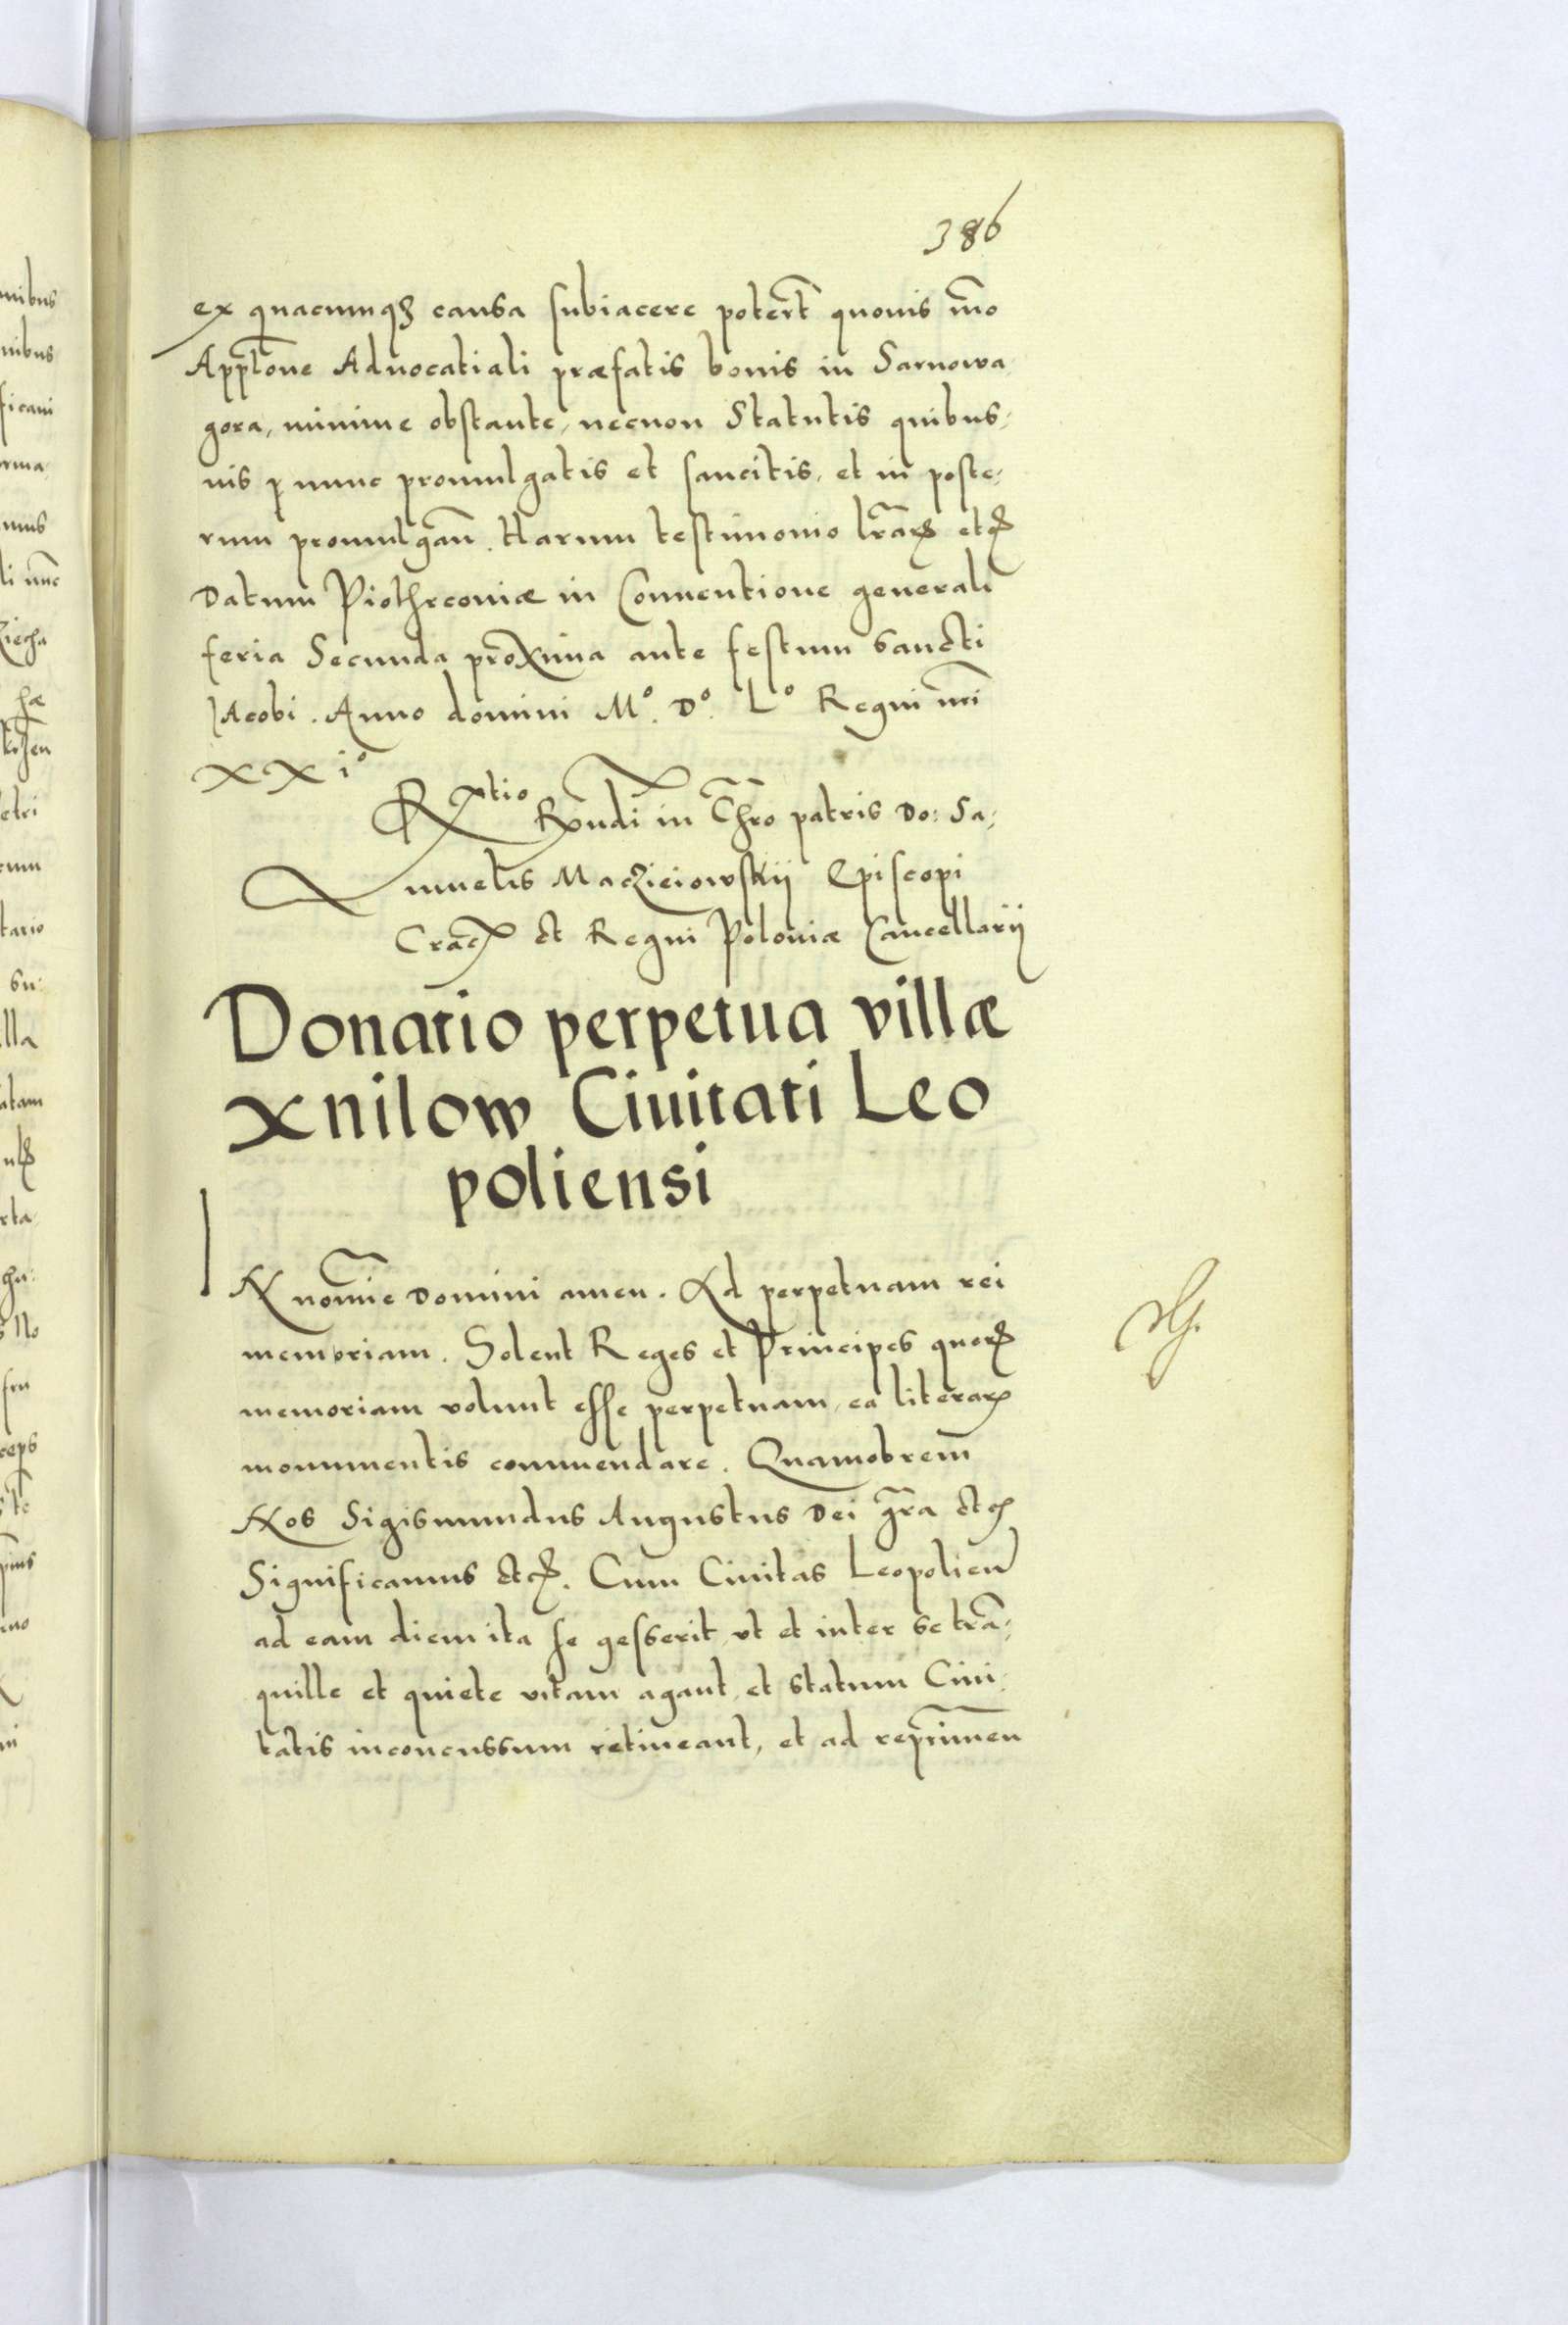 386
ex quacumqꝫ causa subiacere poterᷓt quouis m̃o
App̃tione Aduocatiali præfatis bonis in Sarnowa
gora, minime obstante, necnon Statutis quibus,
uis ꝑ nunc promulgatis et sancitis, et in poste,
rum promulgañ. Harum testimonio lr̃aꝝ etcꝭ
Datum Piothrcouiæ in Conuentione generali
feria Secunda proxima ante festum sancti
Jacobi. Anno domini M°. D°. L° Regni nr̃i
XXi°
Rxtio
Rx̃ndi in Chr̃o patris Do: Sa,
muelis Macziciowskij Episcopi
Cracꝭ et Regni Poloniæ Cancellarij
Donatio perpetua villæ
xnilow Ciuitati Leo
poliensi
IN nom̃ie Domini amen. Ad perpetuam rei
memoriam. Solent Reges et Principes quorꝝ
memoriam volunt esse perpetuam, ea literarꝝ
monumentis commendare. Quamobrem̃
Nos Sigismundus Augustus Dei gr̃a etcꝭ
Significamus etcꝭ. Cum Ciuitas Leopolieñ
ad eam diem ita se gesserit, vt et inter se trã,
quille et quiete vitam agant, et statum Ciui,
tatis inconcussum retineant, et ad repr̃imen